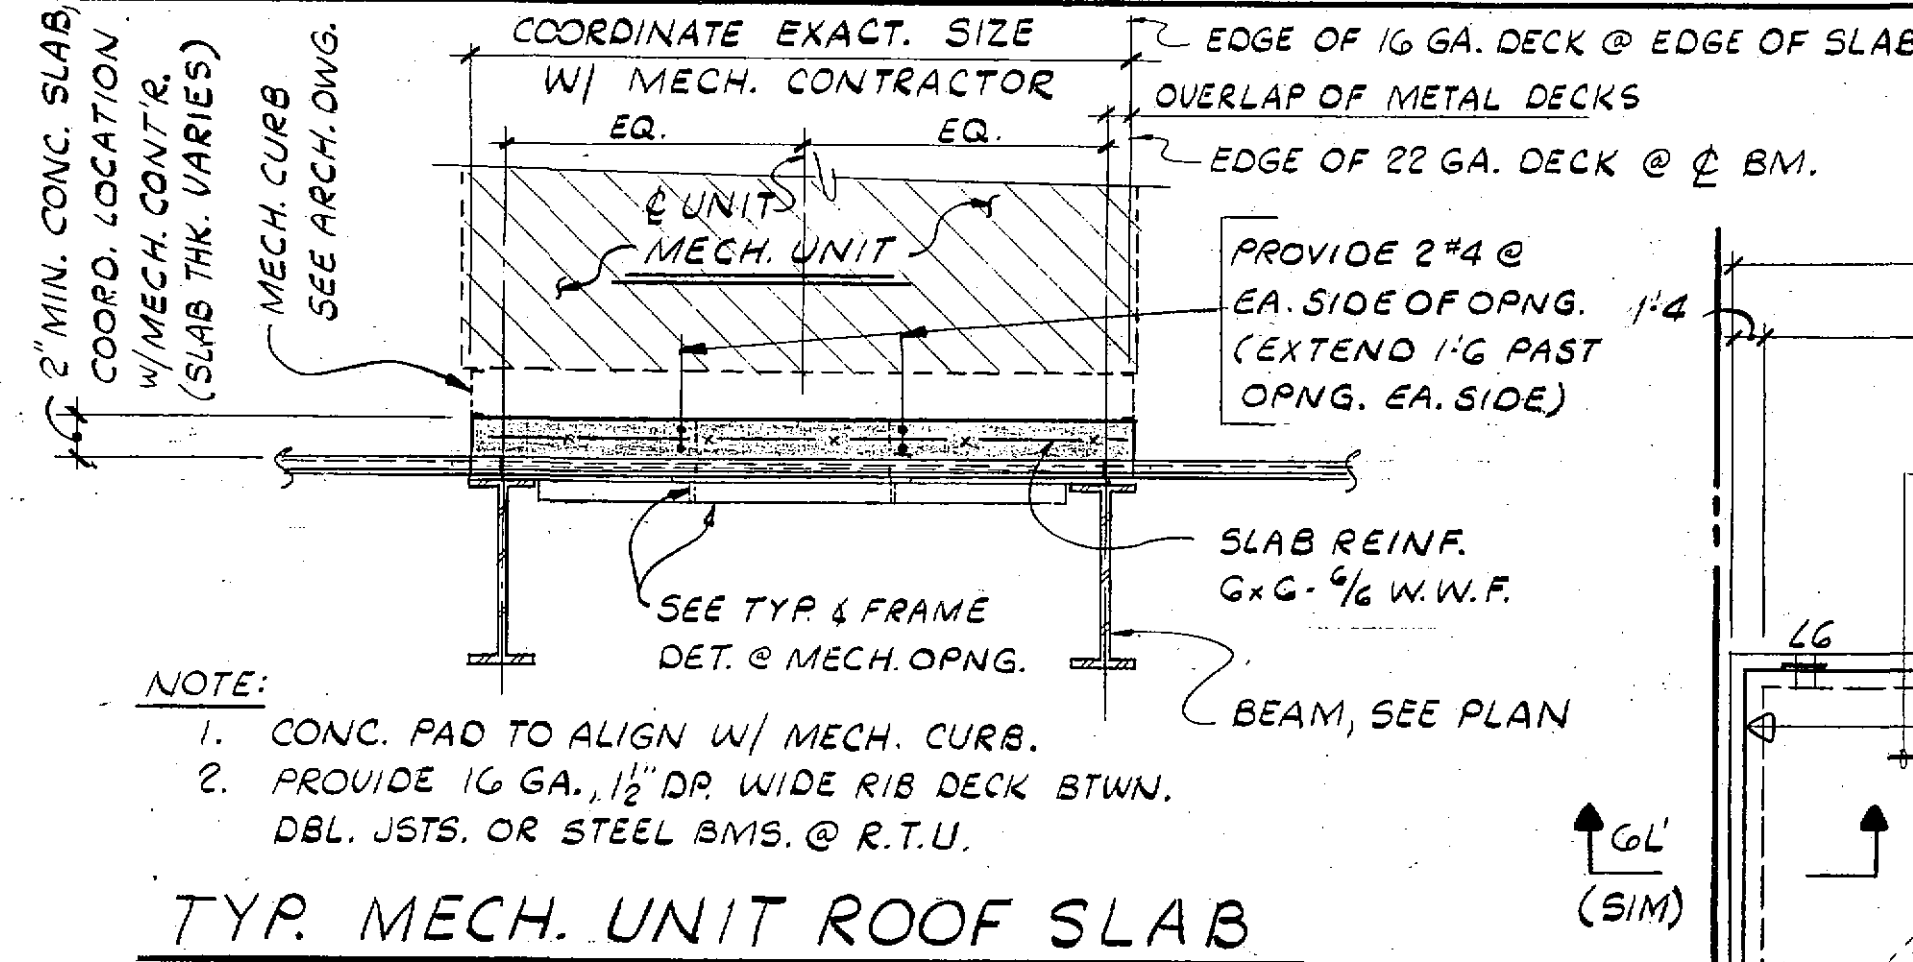 2" MIN. CONC. SLAB,
COORD. LOCATION
W/MECH. CONT'R.
(SLAB THK. VARIES)
MECH. CURB
SEE ARCH. DWG.
COORDINATE EXACT. SIZE
W/ MECH. CONTRACTOR
EQ.
EQ.
EDGE OF 16 GA. DECK @ EDGE OF SLAB
OVERLAP OF METAL DECKS
EDGE OF 22 GA. DECK @ ℄ BM.
℄ UNIT
MECH. UNIT
PROVIDE 2 #4 @
EA. SIDE OF OPNG.
(EXTEND 1'-6 PAST
OPNG. EA. SIDE)
1'-4
SLAB REINF.
6x6 - 6/6 W.W.F.
SEE TYP. ∠ FRAME
DET. @ MECH. OPNG.
BEAM, SEE PLAN
L6
NOTE:
1. CONC. PAD TO ALIGN W/ MECH. CURB.
2. PROVIDE 16 GA., 1½" DP. WIDE RIB DECK BTWN.
DBL. JSTS. OR STEEL BMS. @ R.T.U.
6L'
(SIM)
TYP. MECH. UNIT ROOF SLAB